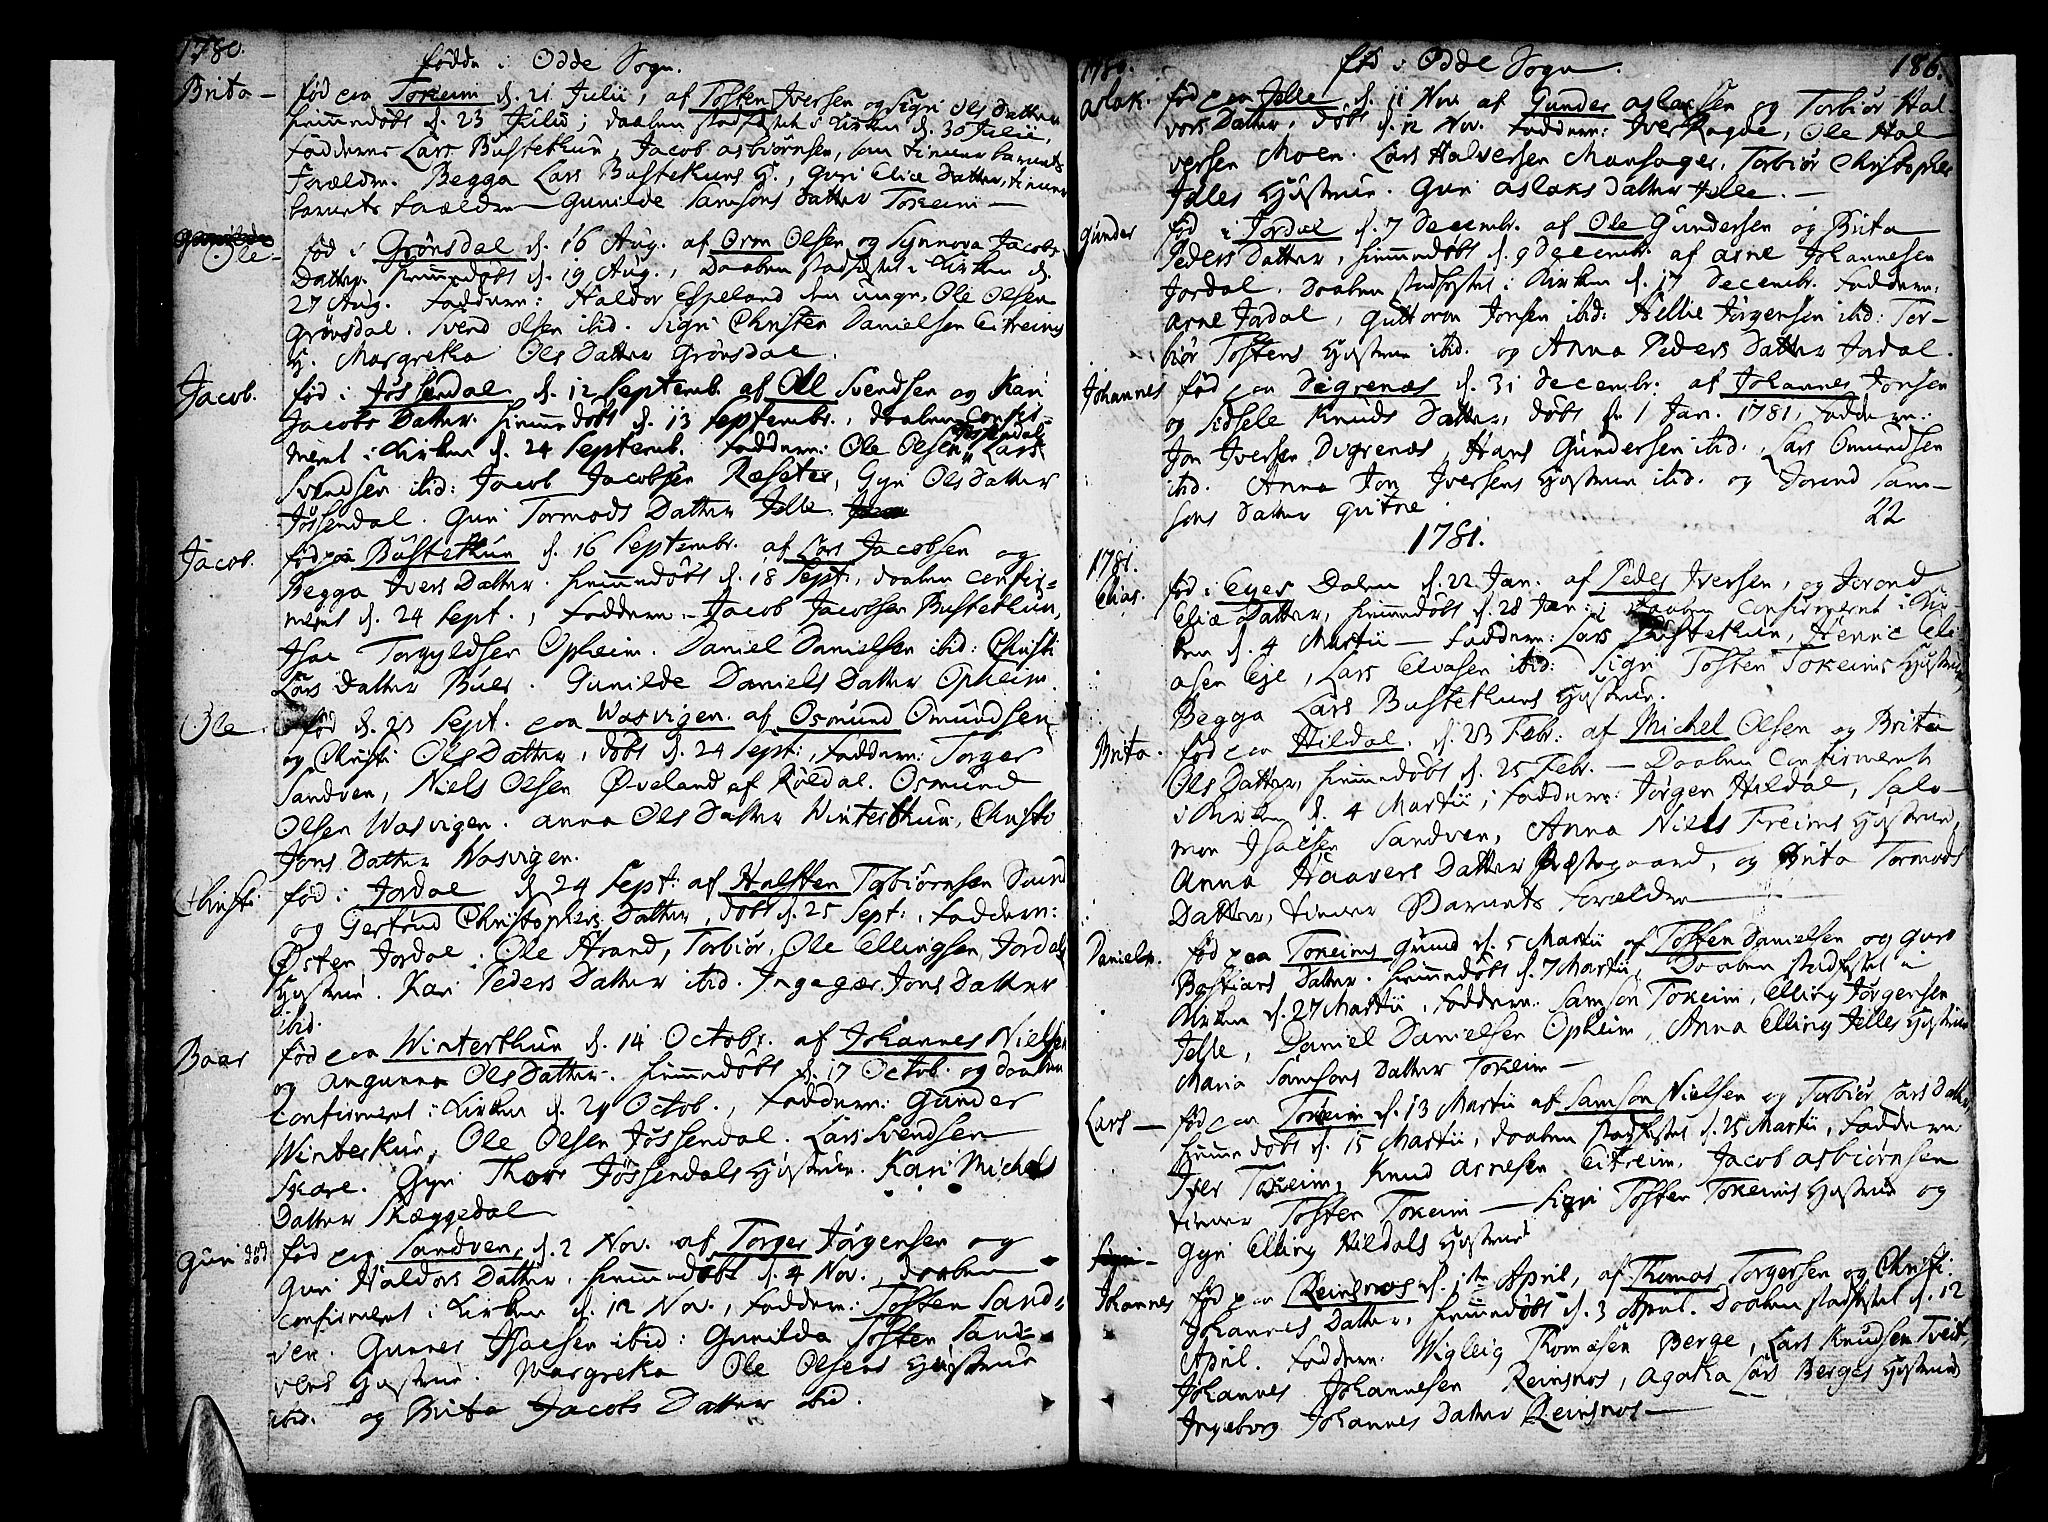 1780.
fødde i Odde Sogn.
Brita — fød paa Tokeim d. 21 Julii, af Tosten Iversen og Sigri Ols Datter
hiemmedøbt d. 23 Julii; daaben stadfæstet i Kirken d. 30 Julii,
Fadderne Lars Bustethun, Jacob Asbiørnsen, tiener barnets
Forældre. Begga Lars Bustethuns H., Guri Eliæ Datter, tiener
barnets Forældre — Gunilde Samsons Datter Tokeim —
Ole — fød i Grønsdal d. 16 Aug. af Orm Olsen og Synnova Jacobs
Datter. hiemmedøbt d. 19 Aug., Daaben stadfæstet i Kirken d.
27 Aug. Faddern: Haldor Espeland den unge, Ole Olsen
Grønsdal. Svend Olsen ibid. Sigri Christen Danielsen Eitreims
H. Margreta Ols Datter Grønsdal.
Jacob. fød i Jøssendal d. 12 Septemb. af Ole Svendsen og Kari
Jacobs Datter. hiemmedøbt d. 13 Septembr., daaben confir=
meret i Kirken d. 24 Septemb. Faddern: Ole Olsen Jøssendal, Lars
Svendsen ibid: Jacob Jacobsen Ræseter, Gyri Ols Datter
Jøssendal. Guri Tormods Datter Jelle.
Jacob. fød paa Bustethun d. 16 Septembr. af Lars Jacobsen og
Begga Ivers Datter. hiemmedøbt d. 18 Sept., daaben confir=
meret d. 24 Sept., Faddern: Jacob Jacobsen Bustethun,
Isac Torgyldsen Opheim. Daniel Danielsen ibid: Christi
Lars Datter Buer. Gunilde Daniels Datter Opheim.
Ole. fød d. 23 Sept. paa Wasvigen af Osmund Omundsen
og Christi Ols Datter, døbt d. 24 Sept:, Faddern: Torger
Sandven, Niels Olsen Øveland af Røldal. Osmund
Olsen Wasvigen. Anna Ols Datter Winterthun, Christi
Jons Datter Wasvigen.
Christi fød i Jordal d. 24 Sept: af Halsten Torbiørnsen
og Gertrud Christophers Datter, døbt d. 25 Sept:, Faddern:
Østen Jordal. Ole Strand, Torbiør Ole Ellingsen Jordals
Hustrue. Kari Peders Datter ibid. Ingegær Jons Datter
ibid.
Baar fød paa Winterthun d. 14 Octobr. af Johannes Nielsen
og Angunna Ols Datter. hiemmedøbt d. 17 Octob. og daaben
confirmeret i Kirken d. 29 Octob., Faddern: Gunder
Winterthun, Ole Olsen Jøssendal. Lars Svendsen
Skare. Gyri Thore Jøssendals Hustrue. Kari Michels
Datter Skæggedal
Guri død fød paa Sandven, d. 2 Nov. af Torger Jørgensen og
Guri Haldors Datter. hiemmedøbt d. 4 Nov., daaben
confirmeret i Kirken d. 12 Nov., Faddern: Tosten Sand=
ven. Gunner Isacsen ibid: Gunilda Tosten Sand=
vens Hustrue. Margreta Ole Olsens Hustrue
ibid. og Brita Jacobs Datter ibid.
1780. fød i Odde Sogn. 186.
Aslak. fød paa Jelle d. 11 Nov. af Gunder Aslaksen og Torbiør Hal
vors Datter, døbt d. 12 Nov. Faddern: Iver Ragde, Ole Hal
versen Moen. Lars Halversen Mansager. Torbiør Christopher
Jelles Hustrue. Guri Aslaks Datter Jelle. —
Gunder fød i Jordal d. 7 Decembr. af Ole Gundersen og Brita
Peders Datter, hiemmedøbt d. 9 Decembr. af Arne Johannesen
Jordal. Daaben stadfæstet i Kirken d. 17 Decembr. Faddern:
Arne Jordal, Guttorm Jonsen ibid: Hellie Jørgensen ibid: Tor—
biør Tostens Hustrue ibid. og Anna Peders Datter Jordal.
Johannes fød paa Digrenæs d. 31 Decembr: af Johannes Jonsen
og Sidsele Knuds Datter, døbt d. 1 Jan. 1781, Faddern:
Jon Iversen Digrenæs, Hans Gundersen ibid. Lars Omundsen
ibid. Anna Jon Iversens Hustrue ibid. og Jorend Sam—
sons Datter Qvitne
22
1781.
1781.
Elias. fød i Eyes Dalen d. 22 Jan. af Peder Iversen, og Jorond
Eliæ Datter, hiemmedøbt d. 28 Jan: Daaben confirmeret i Kir
ken d. 4 Martii — Faddern: Lars Bustethun, Henric Eli
asen Eje, Lars Elvasen ibid: Sigri Tosten Tokeims Hustrue,
Begga Lars Bustethuns Hustrue.
Brita. fød paa Hildal, d. 23 Febr: af Michel Olsen og Brita
Ols Datter, hiemmedøbt d. 25 Febr. — Daaben confirmeret
i Kirken d. 4 Martii, Faddern: Jørgen Hildal, Salo—
mon Isacsen Sandven, Anna Niels Freims Hustrue,
Anna Haavers Datter Præstegaard, og Brita Tormods
Datter, tiener Barnets Forældre
Daniel fød paa Tokeims Grund d. 5 Martii af Tosten Danielsen og Guro
Bastians Datter. hiemmedøbt d. 7 Martii, Daaben stadfæstet i
Kirken d. 27 Martii, Faddern: Samson Tokeim, Elling Jørgensen
Jelle, Daniel Danielsen Opheim, Anna Elling Jelles Hustrue
Maria Samsons Datter Tokeim —
Lars — fød paa Tokeim d. 13 Martii af Samson Nielsen og Torbiør Lars Datter
hiemmedøbt d. 15 Martii, daaben stadfæstet d. 25 Martii, Faddern:
Iver Tokeim, Knud Arnesen Eitreim, Jacob Asbiørnsen
tiener Tosten Tokeim — Sigri Tosten Tokeims Hustrue og
Gyri Elling Hildals Hustrue
Johannes fød paa Reinsnos d. 1te April, af Thomas Torgersen og Christi
Johannes Datter, hiemmedøbt d. 3 April. Daaben stadfæstet d. 12
April. Faddern: Wigleig Thomæsen Berge, Lars Knudsen Tveit,
Johannes Johannesen Reinsnos, Agatha Lars Berges Hustrue
Ingeborg Johannes Datter Reinsnos —